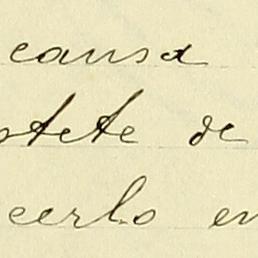 causa
stete de
cerlo en